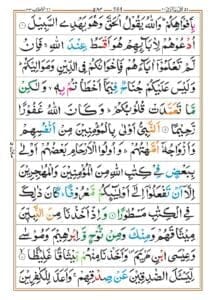 بِاَفْوَاهِكُمْ ؕ وَاللّٰهُ يَقُوْلُ الْحَقَّ وَهُوَ يَهْدِی السَّبِيْلَ
اُدْعُوْهُمْ لِاٰبَآئِهِمْ هُوَ اَقْسَطُ عِنْدَ اللّٰهِ ۚ فَاِنْ
لَّمْ تَعْلَمُوْۤا اٰبَآءَهُمْ فَاِخْوَانُكُمْ فِی الدِّيْنِ وَمَوَالِيْكُمْ ؕ
وَلَيْسَ عَلَيْكُمْ جُنَاحٌ فِيْمَاۤ اَخْطَاْتُمْ بِهٖ ۙ وَلٰكِنْ
مَّا تَعَمَّدَتْ قُلُوْبُكُمْ ؕ وَكَانَ اللّٰهُ غَفُوْرًا
رَّحِيْمًا اَلنَّبِیُّ اَوْلٰی بِالْمُؤْمِنِيْنَ مِنْ اَنْفُسِهِمْ
وَاَزْوَاجُهٗۤ اُمَّهٰتُهُمْ ؕ وَاُولُوا الْاَرْحَامِ بَعْضُهُمْ اَوْلٰی
بِبَعْضٍ فِیْ كِتٰبِ اللّٰهِ مِنَ الْمُؤْمِنِيْنَ وَالْمُهٰجِرِيْنَ
اِلَّاۤ اَنْ تَفْعَلُوْۤا اِلٰۤی اَوْلِيٰٓئِكُمْ مَّعْرُوْفًا ؕ كَانَ ذٰلِكَ
فِی الْكِتٰبِ مَسْطُوْرًا وَاِذْ اَخَذْنَا مِنَ النَّبِيّٖنَ
مِيْثَاقَهُمْ وَمِنْكَ وَمِنْ نُّوْحٍ وَّاِبْرٰهِيْمَ وَمُوْسٰی
وَعِيْسَی ابْنِ مَرْيَمَ ۪ وَاَخَذْنَا مِنْهُمْ مِّيْثَاقًا غَلِيْظًا
لِّيَسْئَلَ الصّٰدِقِيْنَ عَنْ صِدْقِهِمْ ۚ وَاَعَدَّ لِلْكٰفِرِيْنَ